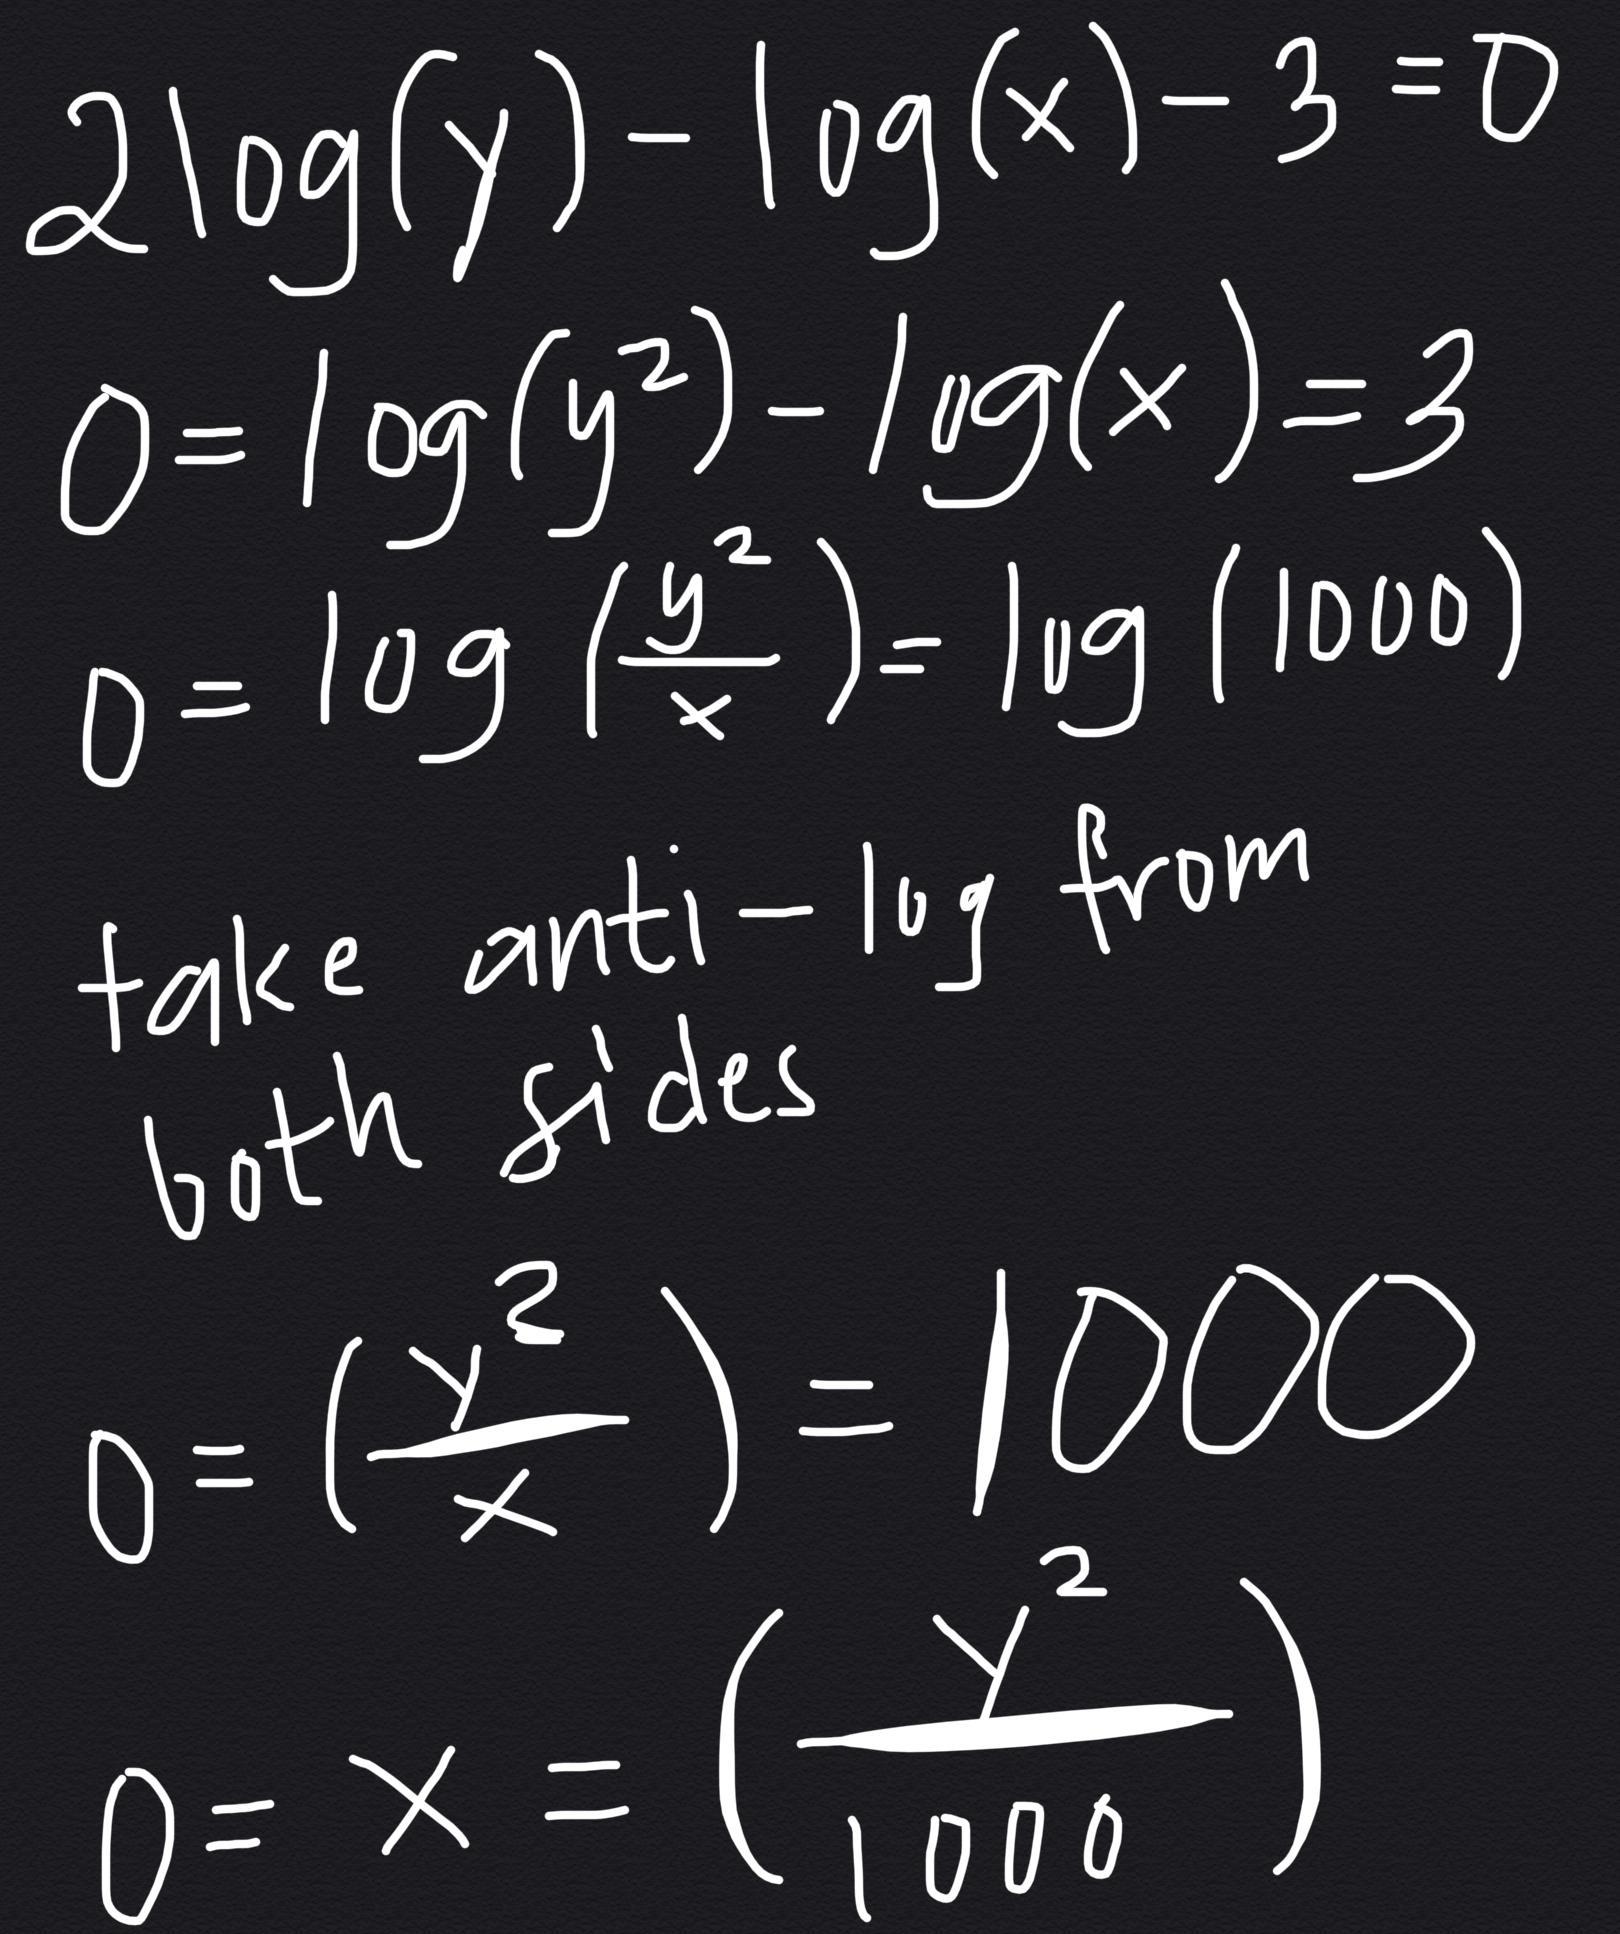 2log(y) - log(x) - 3 = 0
0 = log(y²) - log(x) = 3
0 = log (y²/x) = log (1000)
take anti-log from
both sides
0 = (y²/x) = 1000
0 = x = (y²/1000)